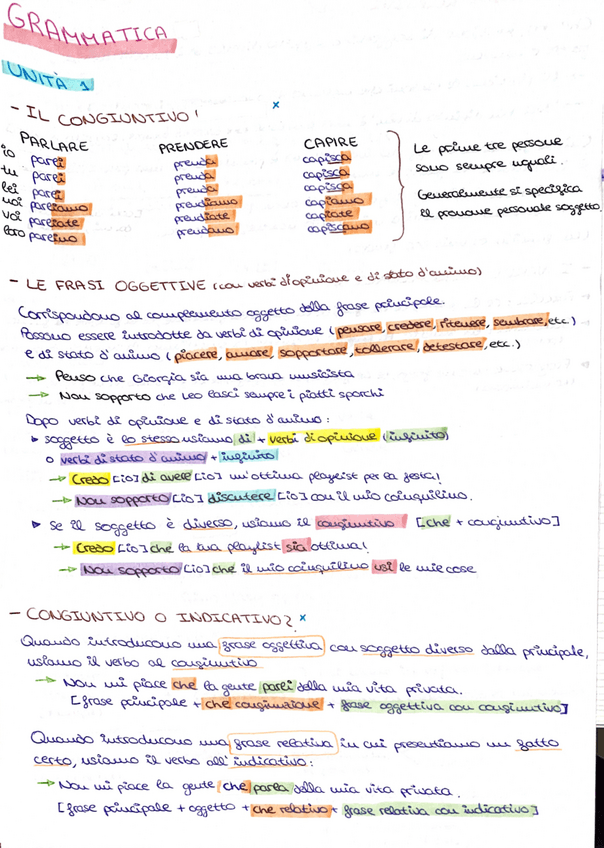 GRAMMATICA
UNITÀ 1
- IL CONGIUNTIVO!
PARLARE PRENDERE CAPIRE
io parli prenda capisca
tu parli prenda capisca
lei parli prenda capisca
noi parliamo prendiamo capiamo
voi parliate prendiate capiate
loro parlino prendano capiscano
Le prime tre persone
sono sempre uguali.
Generalmente si specifica
il pronome personale soggetto.
- LE FRASI OGGETTIVE (con verbi di opinione e di stato d'animo)
Corrispondono al complemento oggetto della frase principale.
Possono essere introdotte da verbi di opinione (pensare, credere, ritenere, sembrare, etc.)
e di stato d'animo (piacere, amare, sopportare, tollerare, detestare, etc.)
→ Penso che Giorgia sia una brava musicista
→ Non sopporto che Leo lasci sempre i piatti sporchi
Dopo verbi di opinione e di stato d'animo:
▸ soggetto è lo stesso usiamo di + verbi di opinione (infinito)
o verbi di stato d'animo + infinito
→ Credo [io] di avere [io] un'ottima playlist per la festa!
→ Non sopporto [io] discutere [io] con il mio coinquilino.
▸ Se il soggetto è diverso, usiamo il congiuntivo [che + congiuntivo]
→ Credo [io] che la tua playlist sia ottima!
→ Non sopporto [io] che il mio coinquilino usi le mie cose
- CONGIUNTIVO O INDICATIVO?
Quando introducono una frase oggettiva con soggetto diverso dalla principale,
usiamo il verbo al congiuntivo
→ Non mi piace che la gente parli della mia vita privata.
[frase principale + che congiunzione + frase oggettiva con congiuntivo]
Quando introducono una frase relativa in cui presentiamo un fatto
certo, usiamo il verbo all'indicativo:
→ Non mi piace la gente che parla della mia vita privata.
[frase principale + oggetto + che relativo + frase relativa con indicativo]